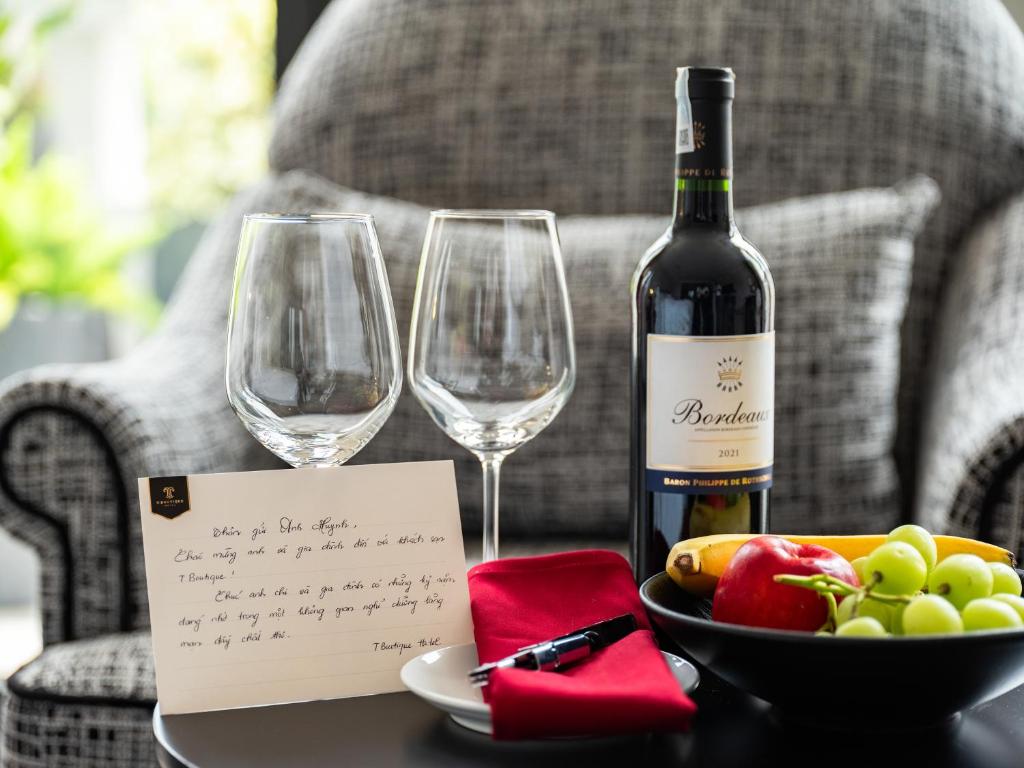 T BOUTIQUE
Thân gửi Anh Huynh,
Chúc mừng anh và gia đình đến với khách sạn
T Boutique!
Chúc anh chị và gia đình có những kỷ niệm
đáng nhớ trong một không gian nghỉ dưỡng lãng
mạn đầy chất thơ.
T Boutique Hotel
PPE DE RO
Bordeaux
APPELLATION BORDEAUX
2021
BARON PHILIPPE DE ROTHSCH